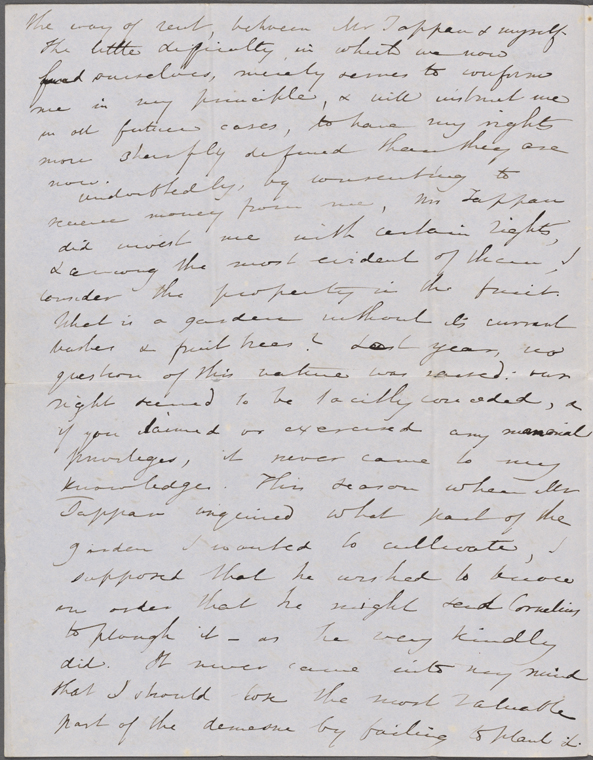 the way of rent, between Mr Tappan & myself.
The little difficulty in which we now
find ourselves, merely serves to confirm
me in my principle, & will instruct me
in all future cases, to have my rights
more sharply defined than they are
now.
Undoubtedly, by consenting to
receive money from me, Mr Tappan
did invest me with certain rights,
& among the most evident of them, I
consider the property in the fruit.
What is a garden without its currant
bushes & fruit trees? Last year, no
question of this nature was raised: our
right seemed to be tacitly conceded, &
if you claimed or exercised any manorial
privileges, it never came to my
knowledge. This season when Mr
Tappan inquired what part of the
garden I wanted to cultivate, I
supposed that he wished to know
in order that he might send Cornelius
to plough it — as he very kindly
did. It never came into my mind
that I should lose the most valuable
part of the demesne by failing to plant it.